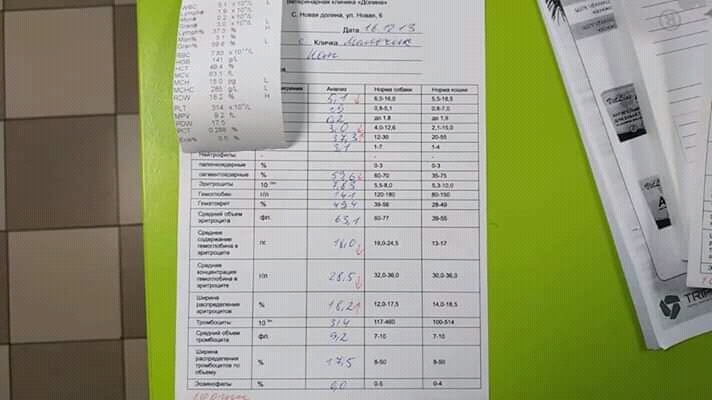 ветеринарная клиника «Долина»
С. Новая долина, ул. Новая, 6
Дата 16.12.13
Кличка Мальчик
WBC 5.1 L
Lymph% 37.3 % H
Mon% 3.1 %
Gran% 59.6 % L
RBC
HGB 141 g/L
HCT 49.4 %
MCV 63.1 fL
MCH 18.0 pg L
MCHC 285 g/L L
RDW 18.2 % H
PLT 314
MPV 9.2 fL
PDW 17.5
PCT 0.288 %
Eos% 0.0 %
Анализ Норма собаки Норма кошки
5,1 6,0-16,0 5,5-19,5
0,8-5,1 0,8-7,0
0,2 до 1,8 до 1,9
3,0 4,0-12,6 2,1-15,0
37,3 12-30 20-55
3,1 1-7 1-4
Нейтрофилы: - - -
палочкоядерные % 0-3 0-3
сегментоядерные % 59,6 60-70 35-75
Эритроциты 10 7,83 5,5-8,0 5,3-10,0
Гемоглобин г/л 141 120-180 80-150
Гематокрит % 49,4 39-56 28-49
Средний объем эритроцита фл. 63,1 60-77 39-55
Среднее содержание гемоглобина в эритроците пг 18,0 19,0-24,5 13-17
Средняя концентрация гемоглобина в эритроците г/л 28,5 32,0-36,0 30,0-36,0
Ширина распределения эритроцитов % 18,2 12,0-17,5 14,0-18,5
Тромбоциты 10 314 117-460 100-514
Средний объем тромбоцита фл. 9,2 7-10 7-10
Ширина распределения тромбоцитов по объему % 17,5 8-50 8-50
Эозинофилы % 0,0 0-5 0-4